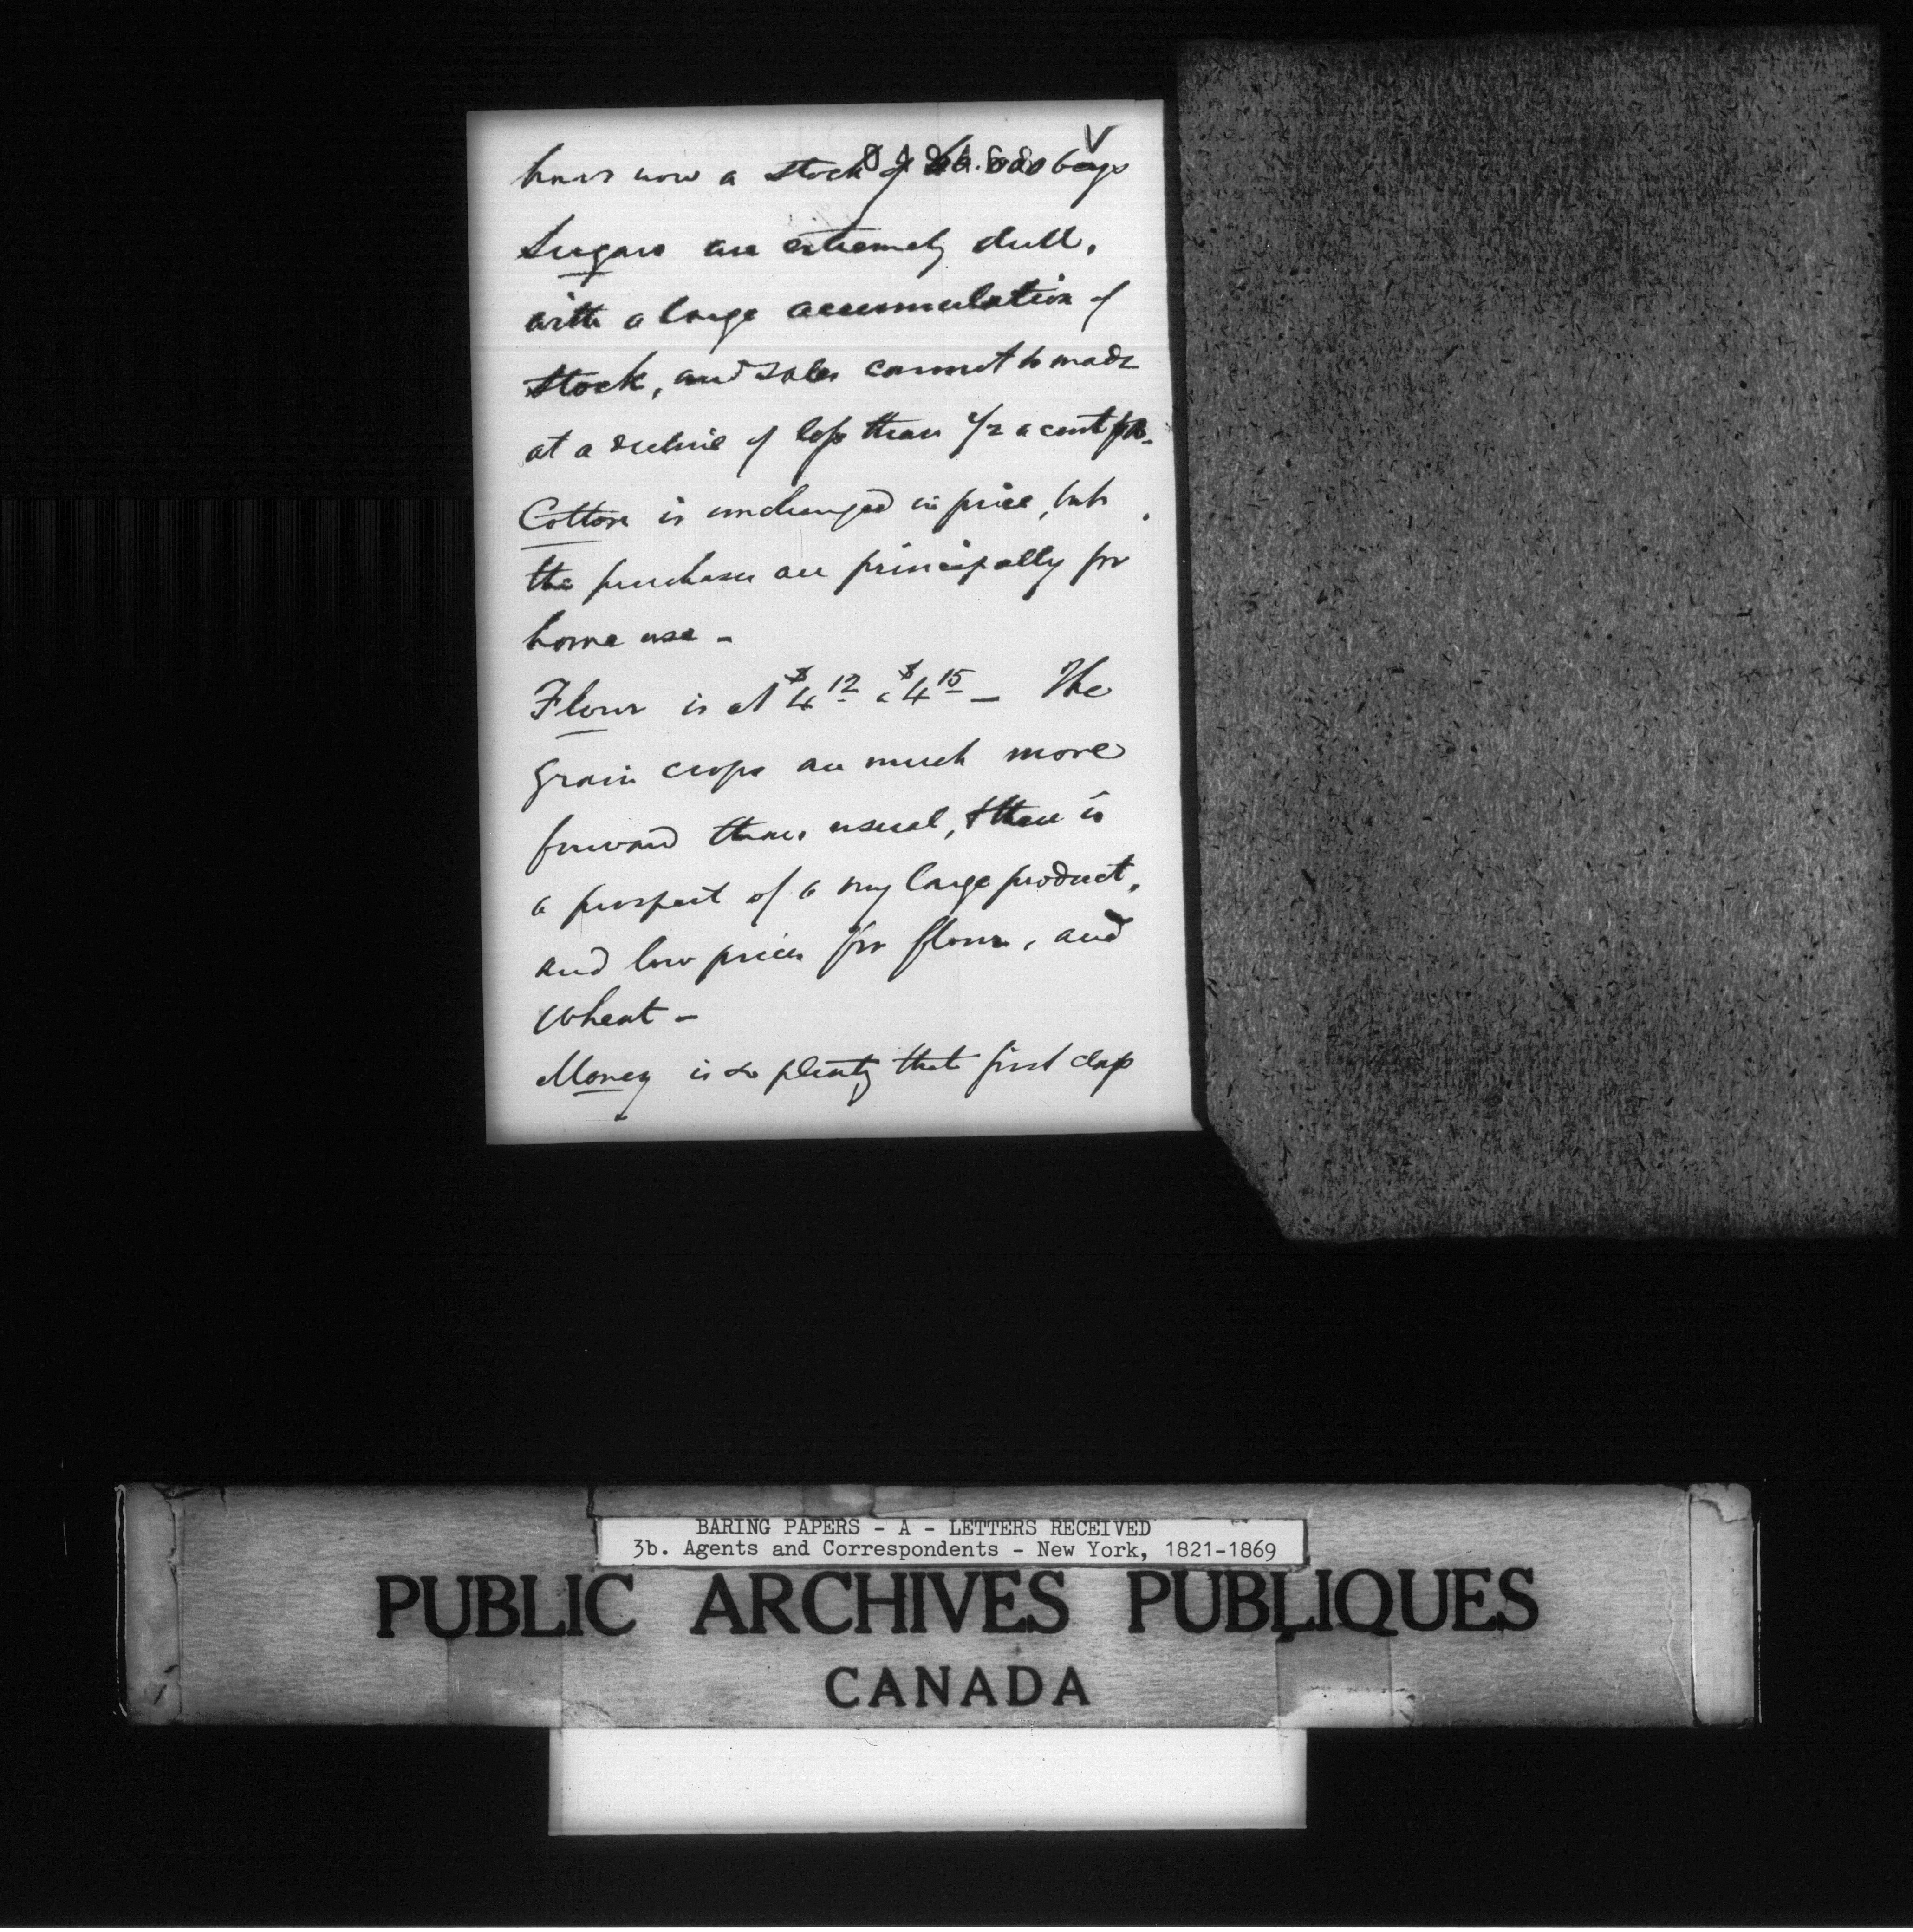 have now a stock of bags
Sugars are extremely dull,
with a large accumulation of
stock, and sales cannot be made
at a decline of less than 1/2 a cent
Cotton is unchanged in price, but
the purchases are principally for
home use -
Flour is at $4 12 a $4 15 - The
grain crops are much more
forward than usual, & there is
a prospect of a very large product,
and low prices for flour, and
Wheat -
Money is so plenty that first class
BARING PAPERS - A - LETTERS RECEIVED
3b. Agents and Correspondents - New York, 1821-1869
PUBLIC ARCHIVES PUBLIQUES
CANADA